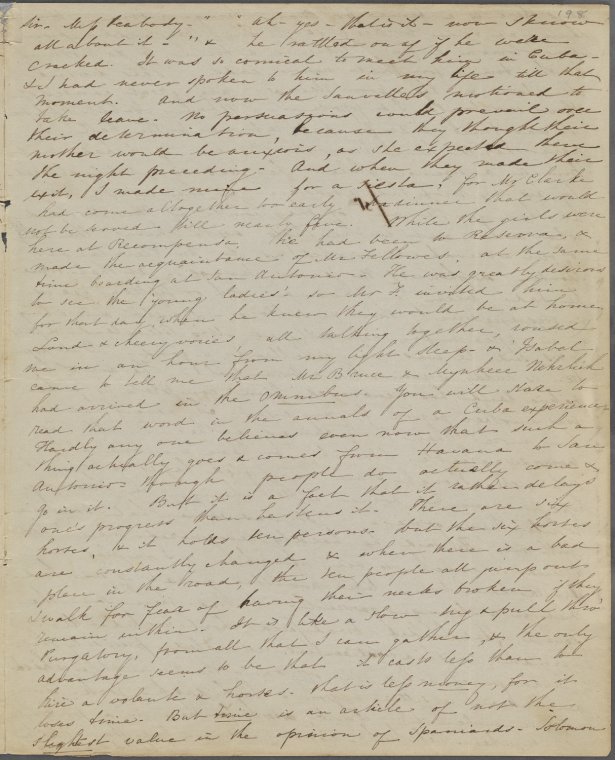 198
Sir. Miss Peabody-" "Ah- yes- that is it- now I know
all about it-" & he rattled on as if he were
cracked. It was so comical to meet him in Cuba-
& I had never spoken to him in my life till that
moment. And now the Sauvalles motioned to
take leave. No persuasions could prevail over
their determination, because they thought their
mother would be anxious, as she expected them
the night preceding. And when they made their
exit, I made mine for a siesta, for Mr Clarke
had come altogether too early to a dinner that would
not be served till nearly five. While the girls were
here at Recompensa, he had been in &
made the acquaintance of Mr. Fellowes, at the same
time boarding at San Antonio. He was greatly desirous
to see the "young ladies"- so Mr F. invited him
for that day, when he knew they would be at home.
Loud & cheery voices, all talking together, roused
me in an hour from my light sleep- & Isabel
came to tell me that Mr Bruce & Mynheer
had arrived in the omnibus. You will stare to
read that word in the annals of a Cuba experience
Hardly any one believes even now that such a
thing actually goes & comes from Havana to San
Antonio though people do actually come &
go in it. But it is a fact that it rather delays
one's progress than hastens it. There are six
horses, & it holds ten persons- but the six horses
are constantly changed & when there is a bad
place in the road, the ten people all jump out
& walk for fear of having their necks broken if they
remain within. It is like a slow tug & pull thro'
Purgatory, from all that I can gather, & the only
advantage seems to be that it costs less than to
hire a volante & horses- that is less money, for it
loses time. But time is an article of not the
slightest value in the opinion of Spaniards- Solomon